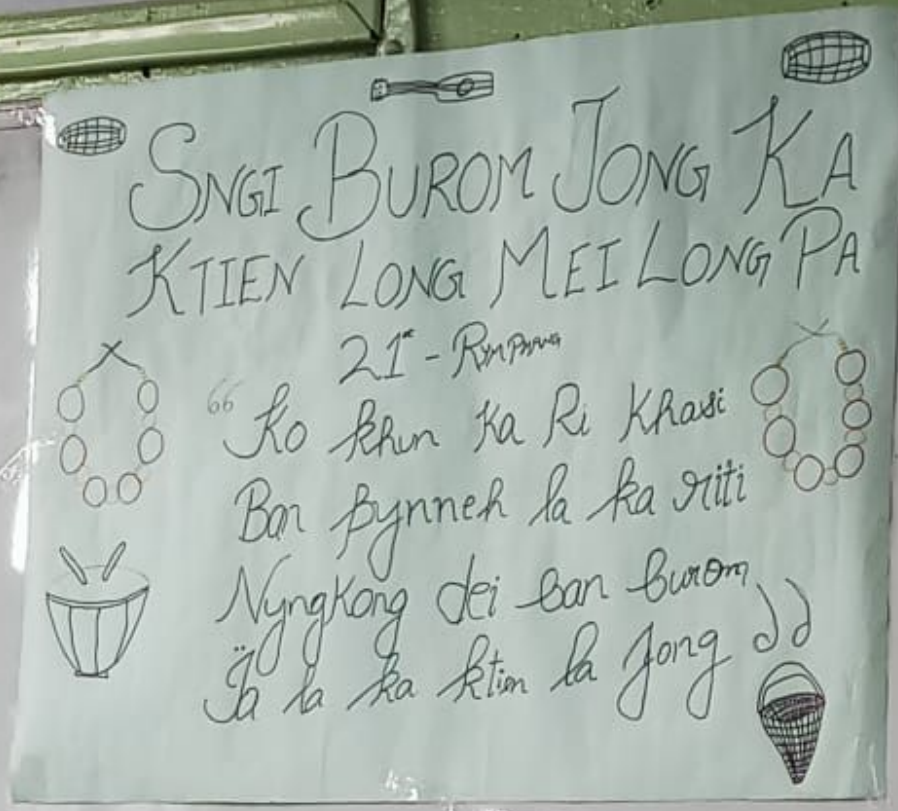 SNGI BUROM JONG KA
KTIEN LONG MEI LONG PA
21st - RYMPHANG
“Ko khun Ka Ri Khasi
Ban pynneh la ka riti
Nyngkong dei ban burom
Ïa la ka ktien la jong”